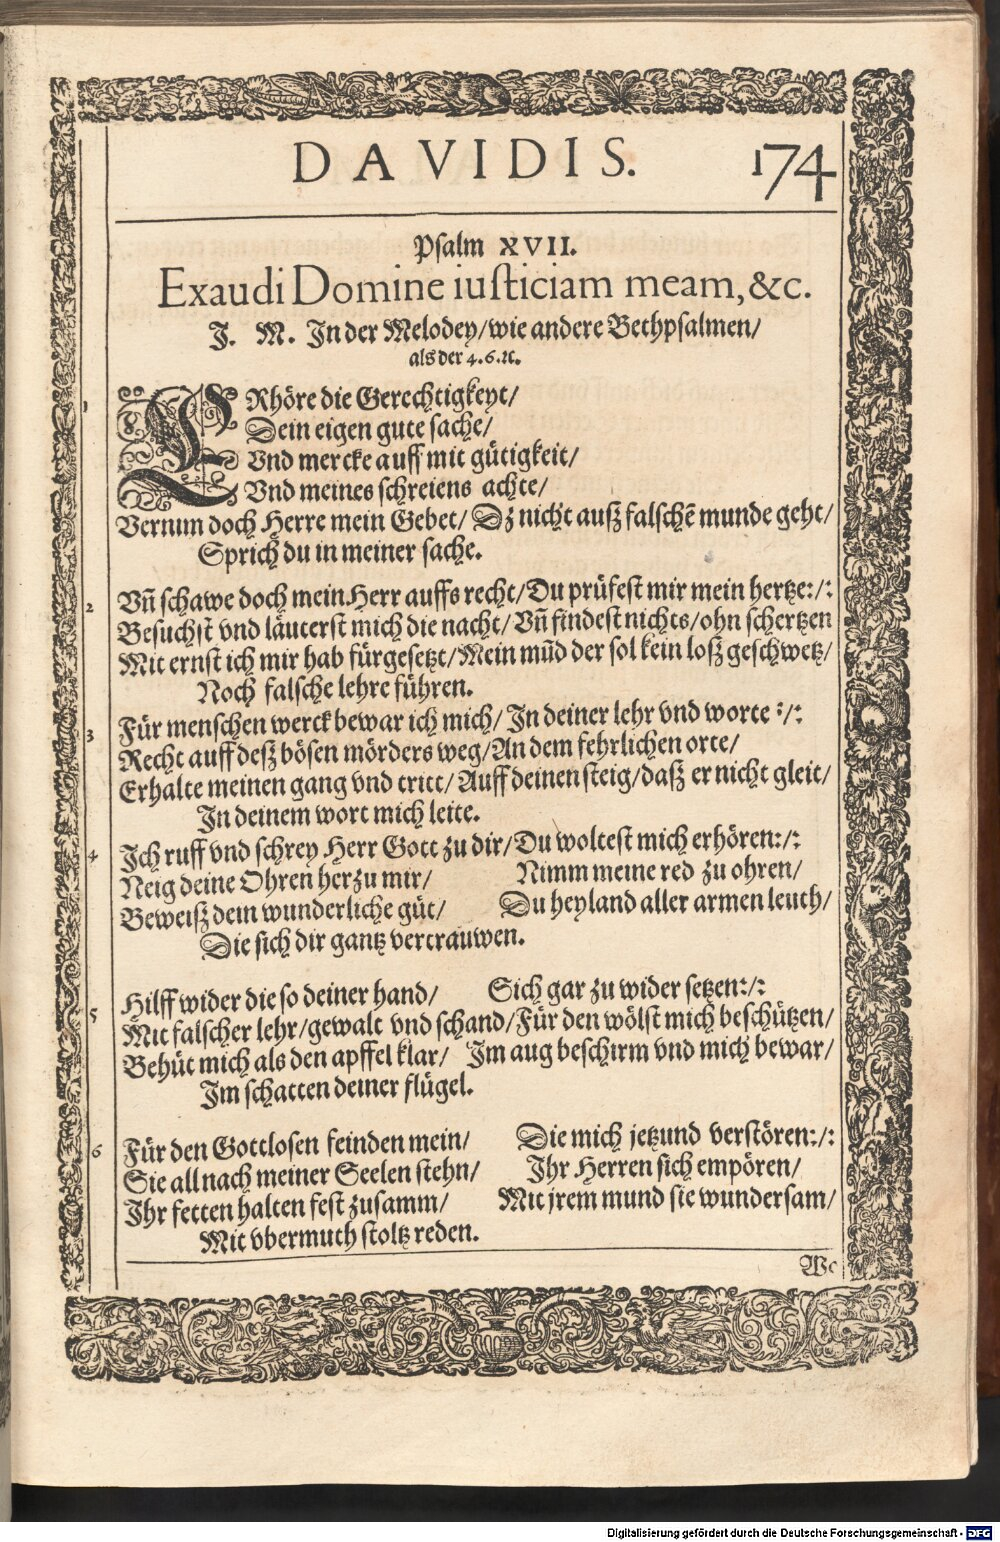 DAVIDIS. 174
Psalm XVII.
Exaudi Domine iusticiam meam, &c.
J. M. In der Melodey/wie andere Bethpsalmen/
als der 4. 6. ꝛc.
1 ERhöre die Gerechtigkeyt/
Dein eigen gute sache/
Vnd mercke auff mit gütigkeit/
Vnd meines schreiens achte/
Vernim doch Herre mein Gebet/ Dz nicht auß falschē munde geht/
Sprich du in meiner sache.
2 Vñ schawe doch mein Herr auffs recht/Du prüfest mir mein hertze:/:
Besuchst vnd läuterst mich die nacht/Vñ findest nichts/ohn schertzen
Mit ernst ich mir hab fürgesetzt/Mein mūd der sol kein loß geschwetz/
Noch falsche lehre führen.
3 Für menschen werck bewar ich mich/ In deiner lehr vnd worte :/:
Recht auff deß bösen mörders weg/An dem fehrlichen orte/
Erhalte meinen gang vnd tritt/Auff deinen steig/daß er nicht gleit/
In deinem wort mich leite.
4 Ich ruff vnd schrey Herr Gott zu dir/Du woltest mich erhören:/:
Neig deine Ohren herzu mir/ Nimm meine red zu ohren/
Beweiß dein wunderliche güt/ Du heyland aller armen leuth/
Die sich dir gantz vertrauwen.
5 Hilff wider die so deiner hand/ Sich gar zu wider setzen:/:
Mit falscher lehr/gewalt vnd schand/Für den wölst mich beschützen/
Behüt mich als den apffel klar/ Im aug beschirm vnd mich bewar/
Im schatten deiner flügel.
6 Für den Gottlosen feinden mein/ Die mich jetzund verstören:/:
Sie all nach meiner Seelen stehn/ Ihr Herren sich empören/
Ihr fetten halten fest zusamm/ Mit jrem mund sie wundersam/
Mit vbermuth stoltz reden.
We
Digitalisierung gefördert durch die Deutsche Forschungsgemeinschaft - DFG